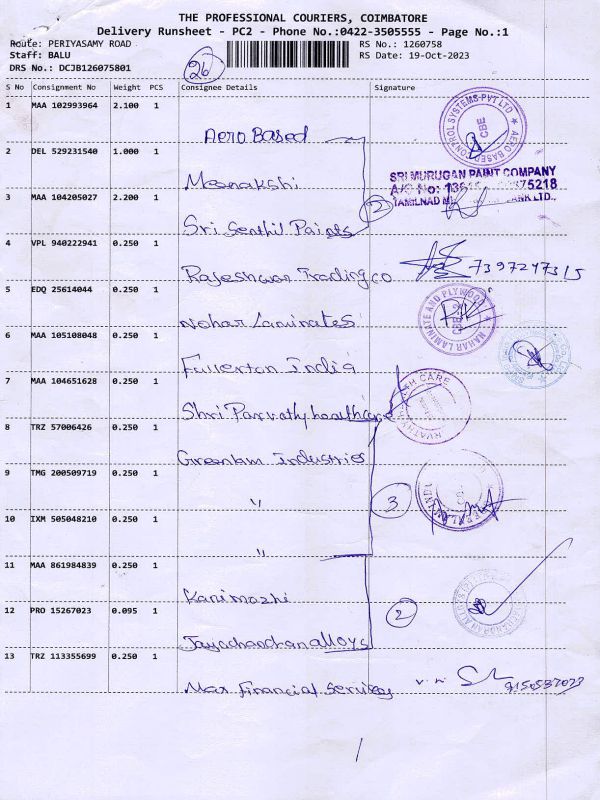 THE PROFESSIONAL COURIERS, COIMBATORE
Delivery Runsheet - PC2 - Phone No.:0422-3505555 - Page No.:1
Route: PERIYASAMY ROAD
RS No.: 1260758
Staff: BALU
RS Date: 19-Oct-2023
DRS No.: DCJB126075801
26
S No Consignment No Weight PCS Consignee Details Signature
1 MAA 102993964 2.100 1
Aero Based
AERO BASED CONTROL SYSTEMS PVT LTD
CBE
2 DEL 529231540 1.000 1
Meenakshi
SRI MURUGAN PAINT COMPANY
A/C No:
TAMILNAD BANK LTD.,
3 MAA 104205027 2.200 1
Sri Senthil Paints
2
4 VPL 940222941 0.250 1
Rajeshwar Trading co
7397247315
5 EDQ 25614044 0.250 1
Nohar Laminates
NAHAR LAMINATE AND PLYWOOD
CBE-2
6 MAA 105108048 0.250 1
Fullerton India
7 MAA 104651628 0.250 1
Shri Parvathy healthcare
CARE
8 TRZ 57006426 0.250 1
Greenlam Industries
9 TMG 200509719 0.250 1
"
3
10 IXM 505048210 0.250 1
"
11 MAA 861984839 0.250 1
Kanimozhi
12 PRO 15267023 0.095 1
Jayachandran alloys
2
13 TRZ 113355699 0.250 1
Max Financial Services
9150537073
1